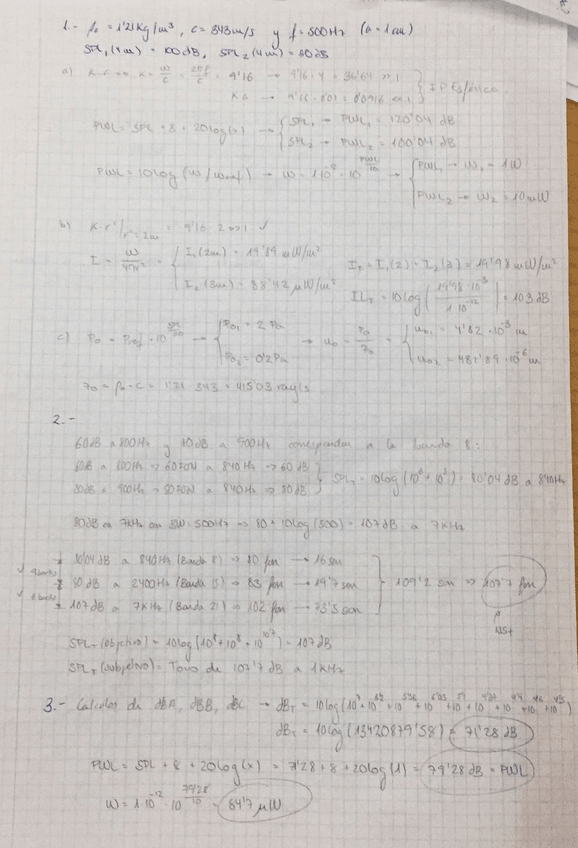 1.- ρ₀ = 1'21 Kg/m³, c = 343 m/s y f = 500 Hz (a = 1 cm)
SPL₁(4m) = 100 dB, SPL₂(4m) = 80 dB
a) K = w/c = 2πf/c = 9'16 → 9'16·4 = 36'64 >> 1
Ka → 9'16·0'01 = 0'0916 << 1
PWL = SPL + 8 + 20log(x) → SPL₁ → PWL₁ = 120'04 dB
SPL₂ → PWL₂ = 100'04 dB
PWL = 10log(W/Wref) → W = 1·10 · 10^(PWL/10) → PWL₁ → W₁ = 1W
PWL₂ → W₂ = 10 mW
b) K·r'|r'=2m = 9'16·2 >> 1 ✓
I = W/4πr² = I₁(2m) = 19'89 mW/m²
I₂(3m) = 88'42 μW/m²
I_T = I₁(2) + I₂(3) = 19'98 mW/m²
IL_T = 10log(19'98·10⁻³ / 1·10⁻¹²) = 103 dB
c) P₀ = Pref · 10^(SPL/20) → P₀₁ = 2 Pa
P₀₂ = 0'2 Pa
→ u₀ = P₀/z₀ = u₀₁ = 4'82·10⁻³ m
u₀₂ = 481'89·10⁻⁶ m
z₀ = ρ₀·c = 1'21·343 = 415'03 rayls
2.-
60 dB a 800 Hz y 80 dB a 900 Hz corresponden a la banda 8:
60 dB a 800 Hz → 60 FON a 840 Hz → 60 dB
80 dB a 900 Hz → 80 FON a 840 Hz → 80 dB
SPL = 10log(10⁶ + 10⁸) = 80'04 dB a 840 Hz
80 dB a 7 kHz con BW: 500 Hz → 80 + 10log(500) = 107 dB a 7 kHz
80'04 dB a 840 Hz (Banda 8) → 80 fon → 16 son
80 dB a 2400 Hz (Banda 15) → 83 fon → 19'7 son
107 dB a 7 kHz (Banda 21) → 102 fon → 73'5 son
109'2 son → 107'7 fon
SPL_T (objetivo) = 10log(10⁸ + 10⁸ + 10^10'7) = 107 dB
SPL_T (subjetivo) = Tono de 107'7 dB a 1 kHz
3.- Calculos de dBA, dBB, dBC → dB_T = 10log
dB_T = 10log(13420879'58) = 71'28 dB
PWL = SPL + 8 + 20log(x) = 7'28 + 8 + 20log(1) = 79'28 dB = PWL
W = 1·10⁻¹² · 10^(79'28/10) = 84'7 μW